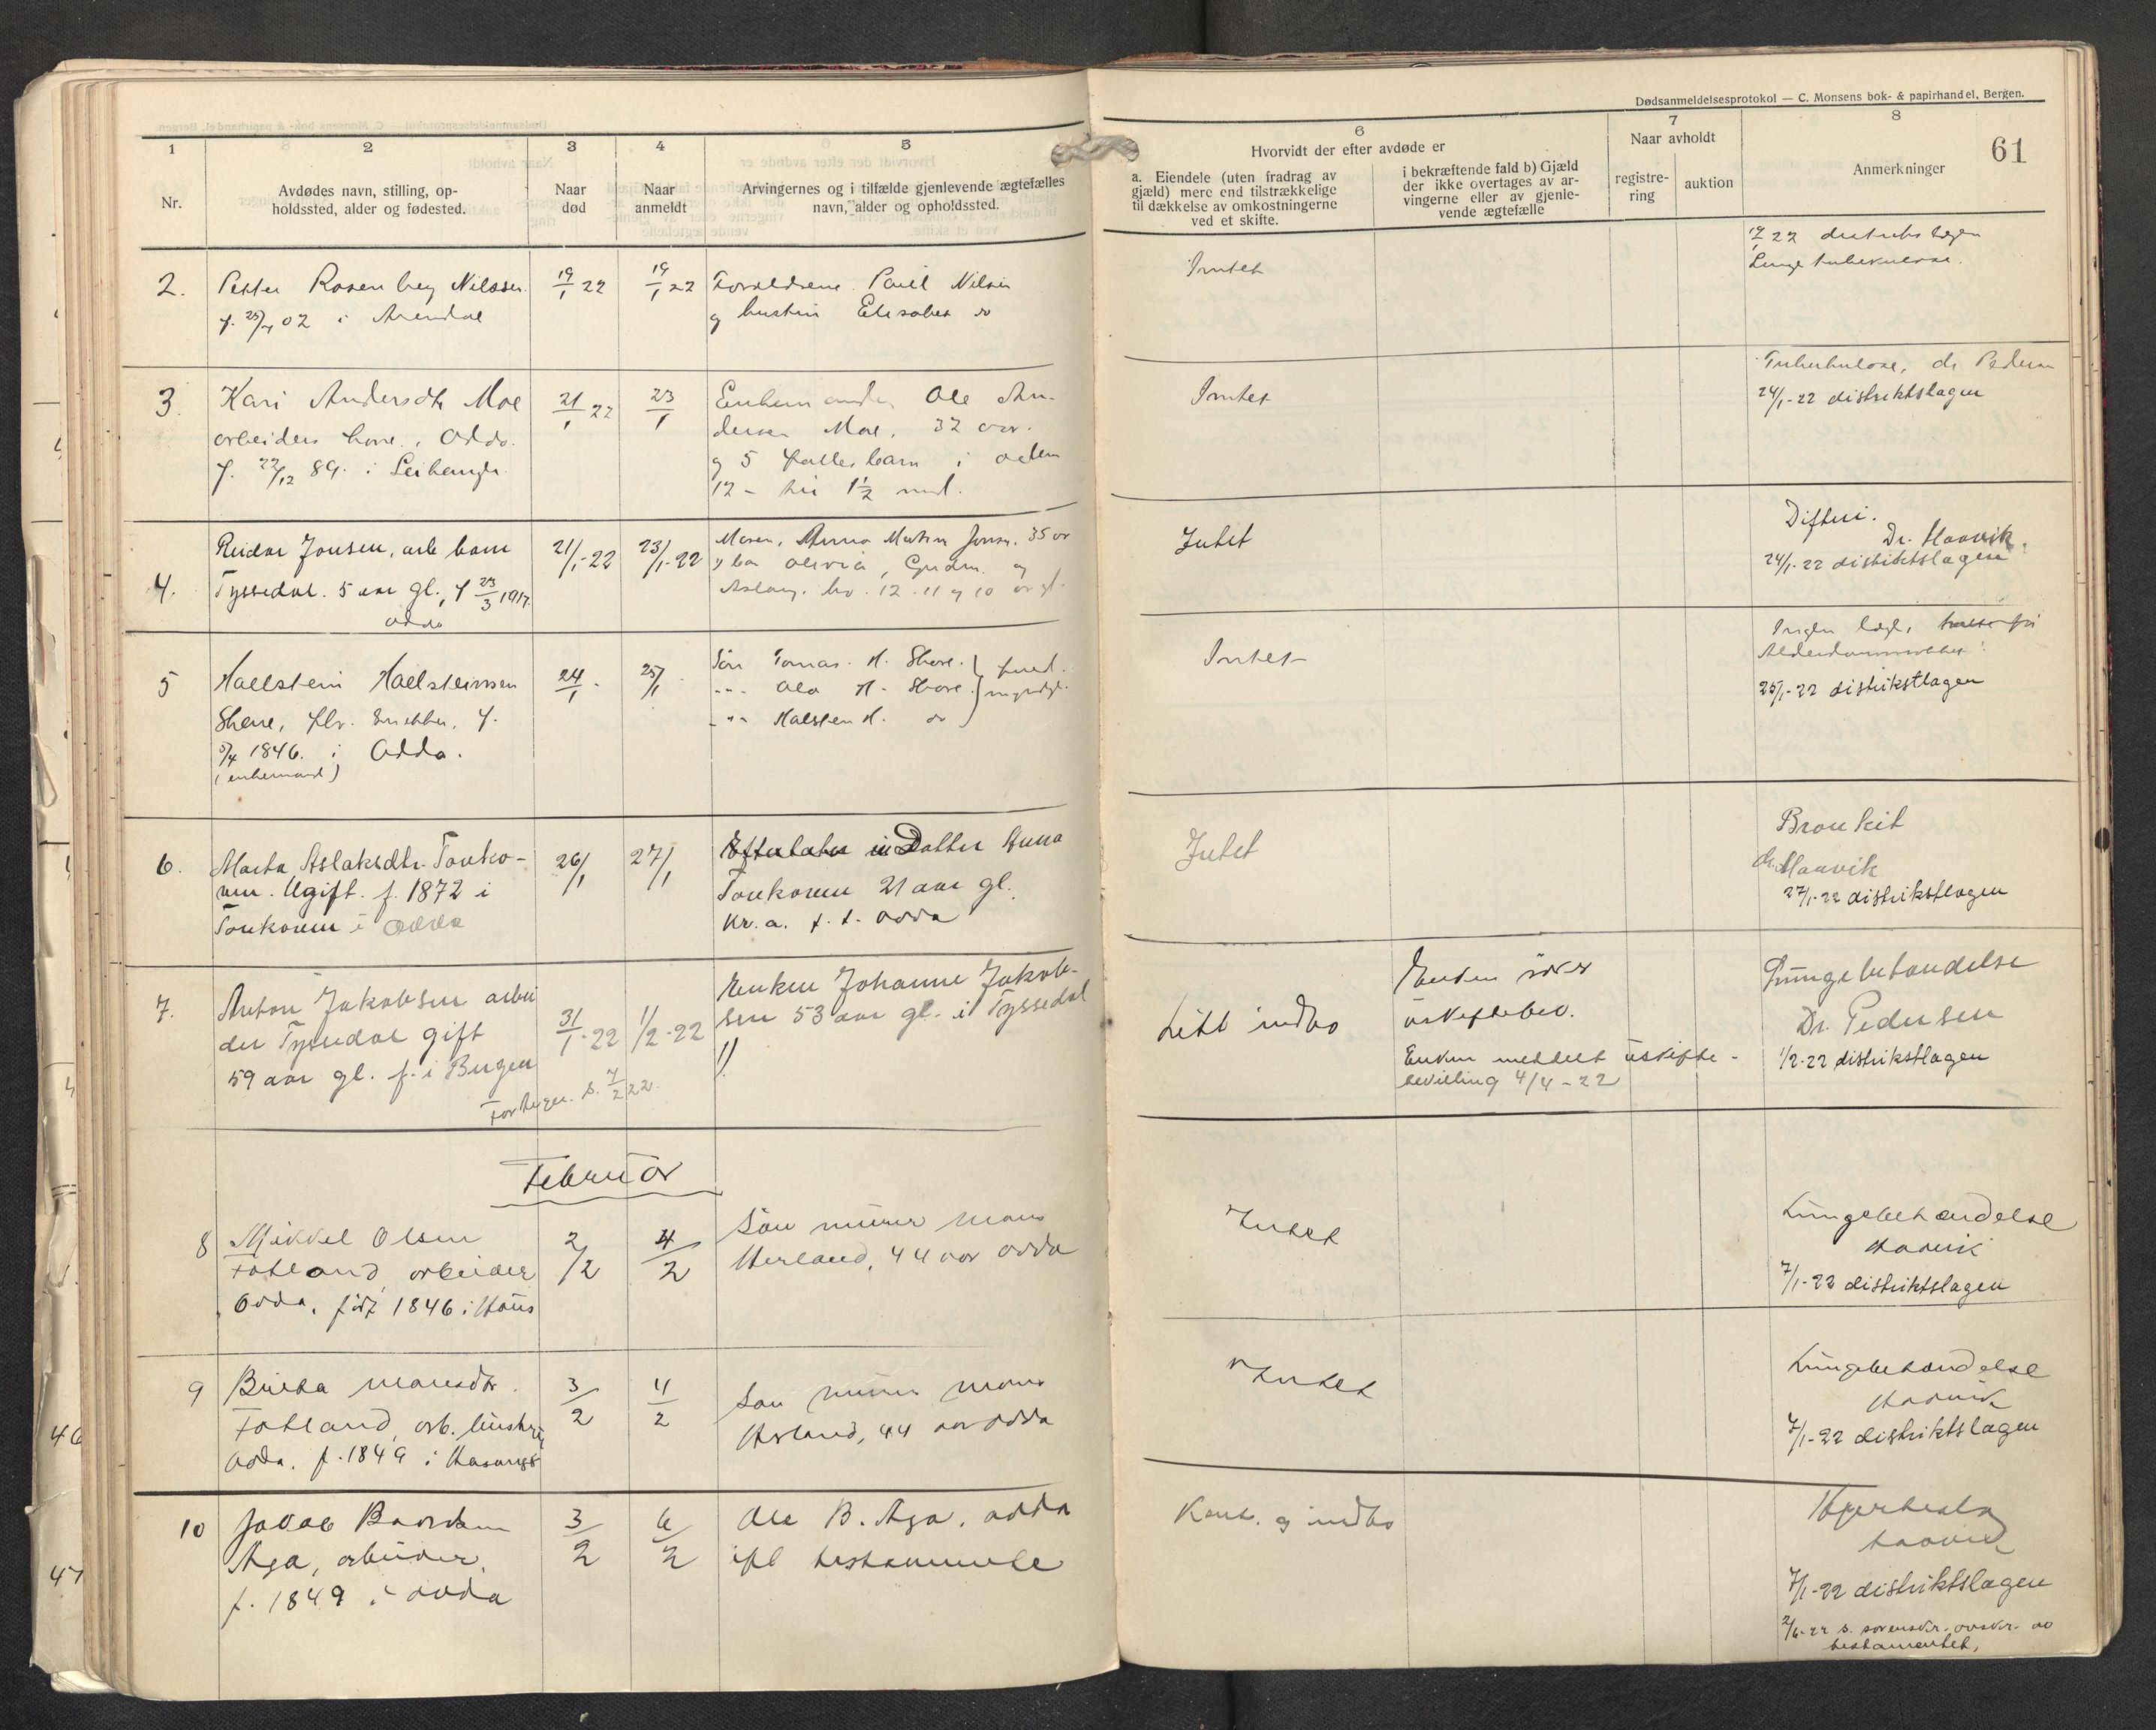 Dødsanmeldelsesprotokol — C. Monsens bok- & papirhandel, Bergen.
61
1
2
3
4
5
6
7
8
Nr.
Avdødes navn, stilling, op-
holdssted, alder og fødested.
Naar
død
Naar
anmeldt
Arvingernes og i tilfælde gjenlevende ægtefælles
navn, alder og opholdssted.
Hvorvidt der efter avdøde er
a. Eiendele (uten fradrag av
gjæld) mere end tilstrækkelige
til dækkelse av omkostningerne
ved et skifte.
i bekræftende fald b) Gjæld
der ikke overtages av ar-
vingerne eller av gjenle-
vende ægtefælle
Naar avholdt
registre-
ring
auktion
Anmerkninger
2.
Petter Rosenberg Nilssen
f. 02 i Arendal
19/1 22
19/1 22
Forældrene Paul Nilsen
g hustru Elisabet do
Intet
22 distriktslægen
Lungetuberkulose.
3.
Kari Andersdtr Moe
arbeiders kone, Odda.
f. 22/12 89. i Leikanger
21/1 22
23/1
Enkemanden Ole An-
dersen Moe, 32 aar.
g 5 fællesbarn i alder
12 - til 1½ mnd.
Intet
Tuberkulose, dr Pedersen
24/1-22 distriktslagen
4.
Reidar Jonsen, arb barn
Tyssedal. 5 aar gl., f 23/3 1917.
Odda
21/1-22
23/1-22
Moren, Anna Jonsen. 35 ar
Olivia, Gudm. og
Aslaug. hv. 12. 11 g 10 ar gl.
Intet
Difteri.
Dr. Haavik.
24/1-22 distriktslagen
5
Hallstein Hallsteinsen
Skare, flv. f.
1846. i Odda.
(enkemand)
24/1
25/1
Søn Tomas. H. Skare.
-"- Ola H. Skare
-"- Halsten H. do
myndige.
Intet
Ingen læge,
25/1-22 distrikstlagen
6.
Marta Aslaksdtr. Tonko-
ven. Ugift. f. 1872 i
Odda
26/1
27/1
Efterlater Datter Anna
21 aar gl.
Kr.a. f. t. Odda
Intet
Bronkit
dr. Haavik
27/1-22 distrikstlagen
7.
Anton Jakobsen arbei
der Tyssedal gift
59 aar gl. f. i Bergen
31/1-22
1/2-22
Enken Johanne Jakob-
sen 53 aar gl. i Tyssedal
Litt indbo
Enken søker
uskiftebev.
Enken meddelt uskifte-
bevilling 4/4-22
Lungebetændelse
Dr. Pedersen
1/2-22 distrikstlagen
7/2 22.
Februar
8
Mikkel Olsen
Fotland, arbeider
Odda, født 1846 i Haus
2/2
4/2
Søn murer Mons
Herland, 44 aar Odda
Intet
Lungebetændelse
Haavik
7/1-22 distriktslagen
9
Birita Monsdtr.
Fotland, arb. hustru
Odda. f. 1849 i
3/2
4/2
Søn murer Mons
Herland, 44 aar Odda
Intet
Lungebetændelse
Haavik
7/1-22 distriktslagen
10
Jakob Baardsen
Aga, arbeider,
f. 1849 i Odda
3/2
6/2
Ole B. Aga, Odda
ifl testamente
Kont. og indbo
Haavik
7/1-22 distriktslagen
2/6-22 s. sorenskr. avskr. av
testamentet.